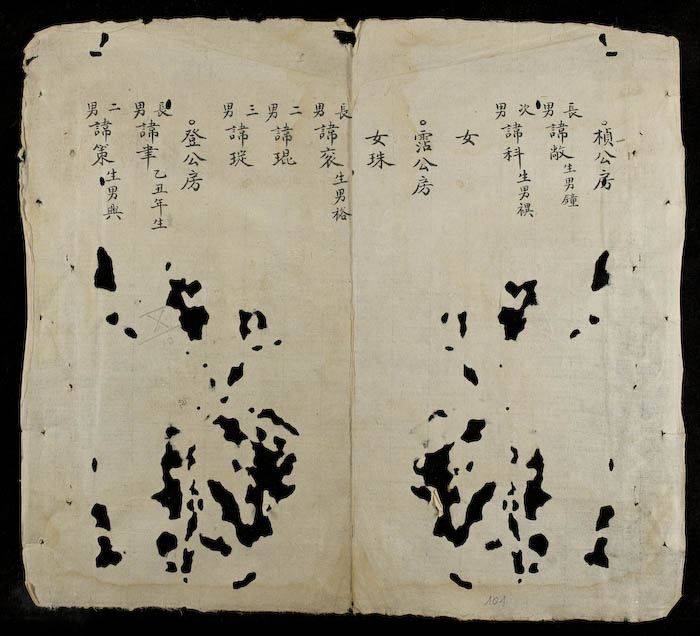 楨公房
長男諱敞生男鐘
次男諱科生男禩
女
霑公房
女珠
長男諱衮生男裕
二男諱琨
三男諱琔
登公房
長男諱聿乙丑年生
二男諱策生男興
101